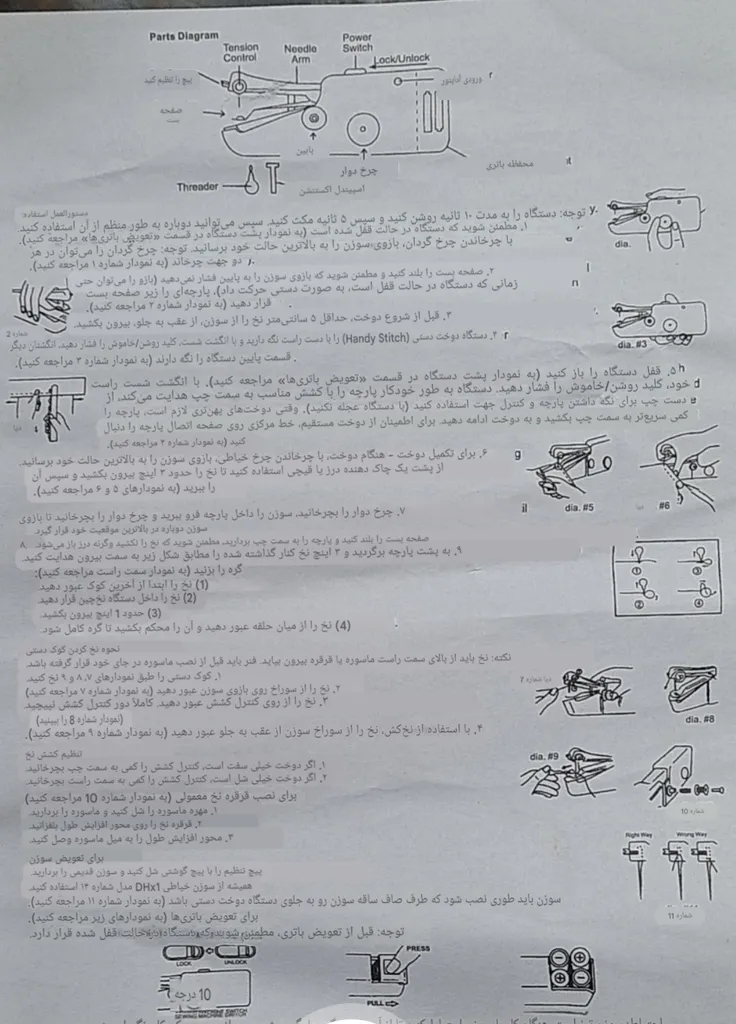 Parts Diagram
Tension Control
Needle Arm
Power Switch
Lock/Unlock
پیچ را تنظیم کنید
ورودی آداپتور
صفحه بست
پایین
چرخ دوار
محفظه باتری
Threader
اسپیندل اکستنشن
دستورالعمل استفاده:
توجه: دستگاه را به مدت ۱۰ ثانیه روشن کنید و سپس ۵ ثانیه مکث کنید. سپس می‌توانید دوباره به طور منظم از آن استفاده کنید.
۱. مطمئن شوید که دستگاه در حالت قفل شده است (به نمودار پشت دستگاه در قسمت «تعویض باتری‌ها» مراجعه کنید).
با چرخاندن چرخ گردان، بازوی سوزن را به بالاترین حالت خود برسانید. توجه: چرخ گردان را می‌توان در هر
دو جهت چرخاند (به نمودار شماره ۱ مراجعه کنید).
dia.
۲. صفحه بست را بلند کنید و مطمئن شوید که بازوی سوزن را به پایین فشار نمی‌دهید (بازو را می‌توان حتی
زمانی که دستگاه در حالت قفل است، به صورت دستی حرکت داد). پارچه‌ای را زیر صفحه بست
قرار دهید (به نمودار شماره ۲ مراجعه کنید).
۳. قبل از شروع دوخت، حداقل ۵ سانتی‌متر نخ را از سوزن، از عقب به جلو، بیرون بکشید.
شماره 2
۴. دستگاه دوخت دستی (Handy Stitch) را با دست راست نگه دارید و با انگشت شست، کلید روشن/خاموش را فشار دهید. انگشتان دیگر
قسمت پایین دستگاه را نگه دارند (به نمودار شماره ۳ مراجعه کنید).
dia. #3
۵. قفل دستگاه را باز کنید (به نمودار پشت دستگاه در قسمت «تعویض باتری‌ها» مراجعه کنید). با انگشت شست راست
خود، کلید روشن/خاموش را فشار دهید. دستگاه به طور خودکار پارچه را با کشش مناسب به سمت چپ هدایت می‌کند، از
دست چپ برای نگه داشتن پارچه و کنترل جهت استفاده کنید (با دستگاه عجله نکنید). وقتی دوخت‌های پهن‌تری لازم است، پارچه را
کمی سریع‌تر به سمت چپ بکشید و به دوخت ادامه دهید. برای اطمینان از دوخت مستقیم، خط مرکزی روی صفحه اتصال پارچه را دنبال
کنید (به نمودار شماره ۴ مراجعه کنید).
۶. برای تکمیل دوخت - هنگام دوخت، با چرخاندن چرخ خیاطی، بازوی سوزن را به بالاترین حالت خود برسانید.
از پشت یک چاک دهنده درز یا قیچی استفاده کنید تا نخ را حدود ۳ اینچ بیرون بکشید و سپس آن
را ببرید (به نمودارهای ۵ و ۶ مراجعه کنید).
dia. #5
#6
۷. چرخ دوار را بچرخانید، سوزن را داخل پارچه فرو ببرید و چرخ دوار را بچرخانید تا بازوی
سوزن دوباره در بالاترین موقعیت خود قرار گیرد.
۸. صفحه بست را بلند کنید و پارچه را به سمت چپ بردارید، مطمئن شوید که نخ را نکشید وگرنه درز باز می‌شود.
۹. به پشت پارچه برگردید و ۳ اینچ نخ کنار گذاشته شده را مطابق شکل زیر به سمت بیرون هدایت کنید.
گره را بزنید (به نمودار سمت راست مراجعه کنید):
(1) نخ را ابتدا از آخرین کوک عبور دهید.
(2) نخ را داخل دستگاه نخ‌چین قرار دهید
(3) حدود 1 اینچ بیرون بکشید.
(4) نخ را از میان حلقه عبور دهید و آن را محکم بکشید تا گره کامل شود.
①
③
②
④
نحوه نخ کردن کوک دستی
نکته: نخ باید از بالای سمت راست ماسوره یا قرقره بیرون بیاید. فنر باید قبل از نصب ماسوره در جای خود قرار گرفته باشد.
۱. کوک دستی را طبق نمودارهای ۷، ۸ و ۹ نخ کنید.
۲. نخ را از سوراخ روی بازوی سوزن عبور دهید (به نمودار شماره ۷ مراجعه کنید)
۳. نخ را از روی کنترل کشش عبور دهید. کاملاً دور کنترل کشش نپیچید.
(نمودار شماره 8 را ببینید)
۴. با استفاده از نخ‌کش، نخ را از سوراخ سوزن از عقب به جلو عبور دهید (به نمودار شماره ۹ مراجعه کنید).
dia. #8
تنظیم کشش نخ
۱. اگر دوخت خیلی سفت است، کنترل کشش را کمی به سمت چپ بچرخانید.
۲. اگر دوخت خیلی شل است، کنترل کشش را کمی به سمت راست بچرخانید.
dia. #9
برای نصب قرقره نخ معمولی (به نمودار شماره 10 مراجعه کنید)
۱. مهره ماسوره را شل کنید و ماسوره را بردارید.
۲. قرقره نخ را روی محور افزایش طول بلغزانید.
۳. محور افزایش طول را به میل ماسوره وصل کنید.
شماره 10
برای تعویض سوزن
پیچ تنظیم را با پیچ گوشتی شل کنید و سوزن قدیمی را بردارید.
همیشه از سوزن خیاطی DHx1 مدل شماره ۱۴ استفاده کنید.
سوزن باید طوری نصب شود که طرف صاف ساقه سوزن رو به جلوی دستگاه دوخت دستی باشد (به نمودار شماره ۱۱ مراجعه کنید).
Right Way
Wrong Way
شماره 11
برای تعویض باتری‌ها (به نمودارهای زیر مراجعه کنید):
توجه: قبل از تعویض باتری، مطمئن شوید که دستگاه در حالت قفل شده قرار دارد.
LOCK
UNLOCK
10 درجه
SEWING MACHINE SWITCH
PRESS
PULL